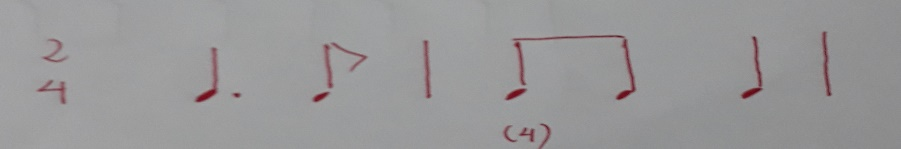 2
4
(4)